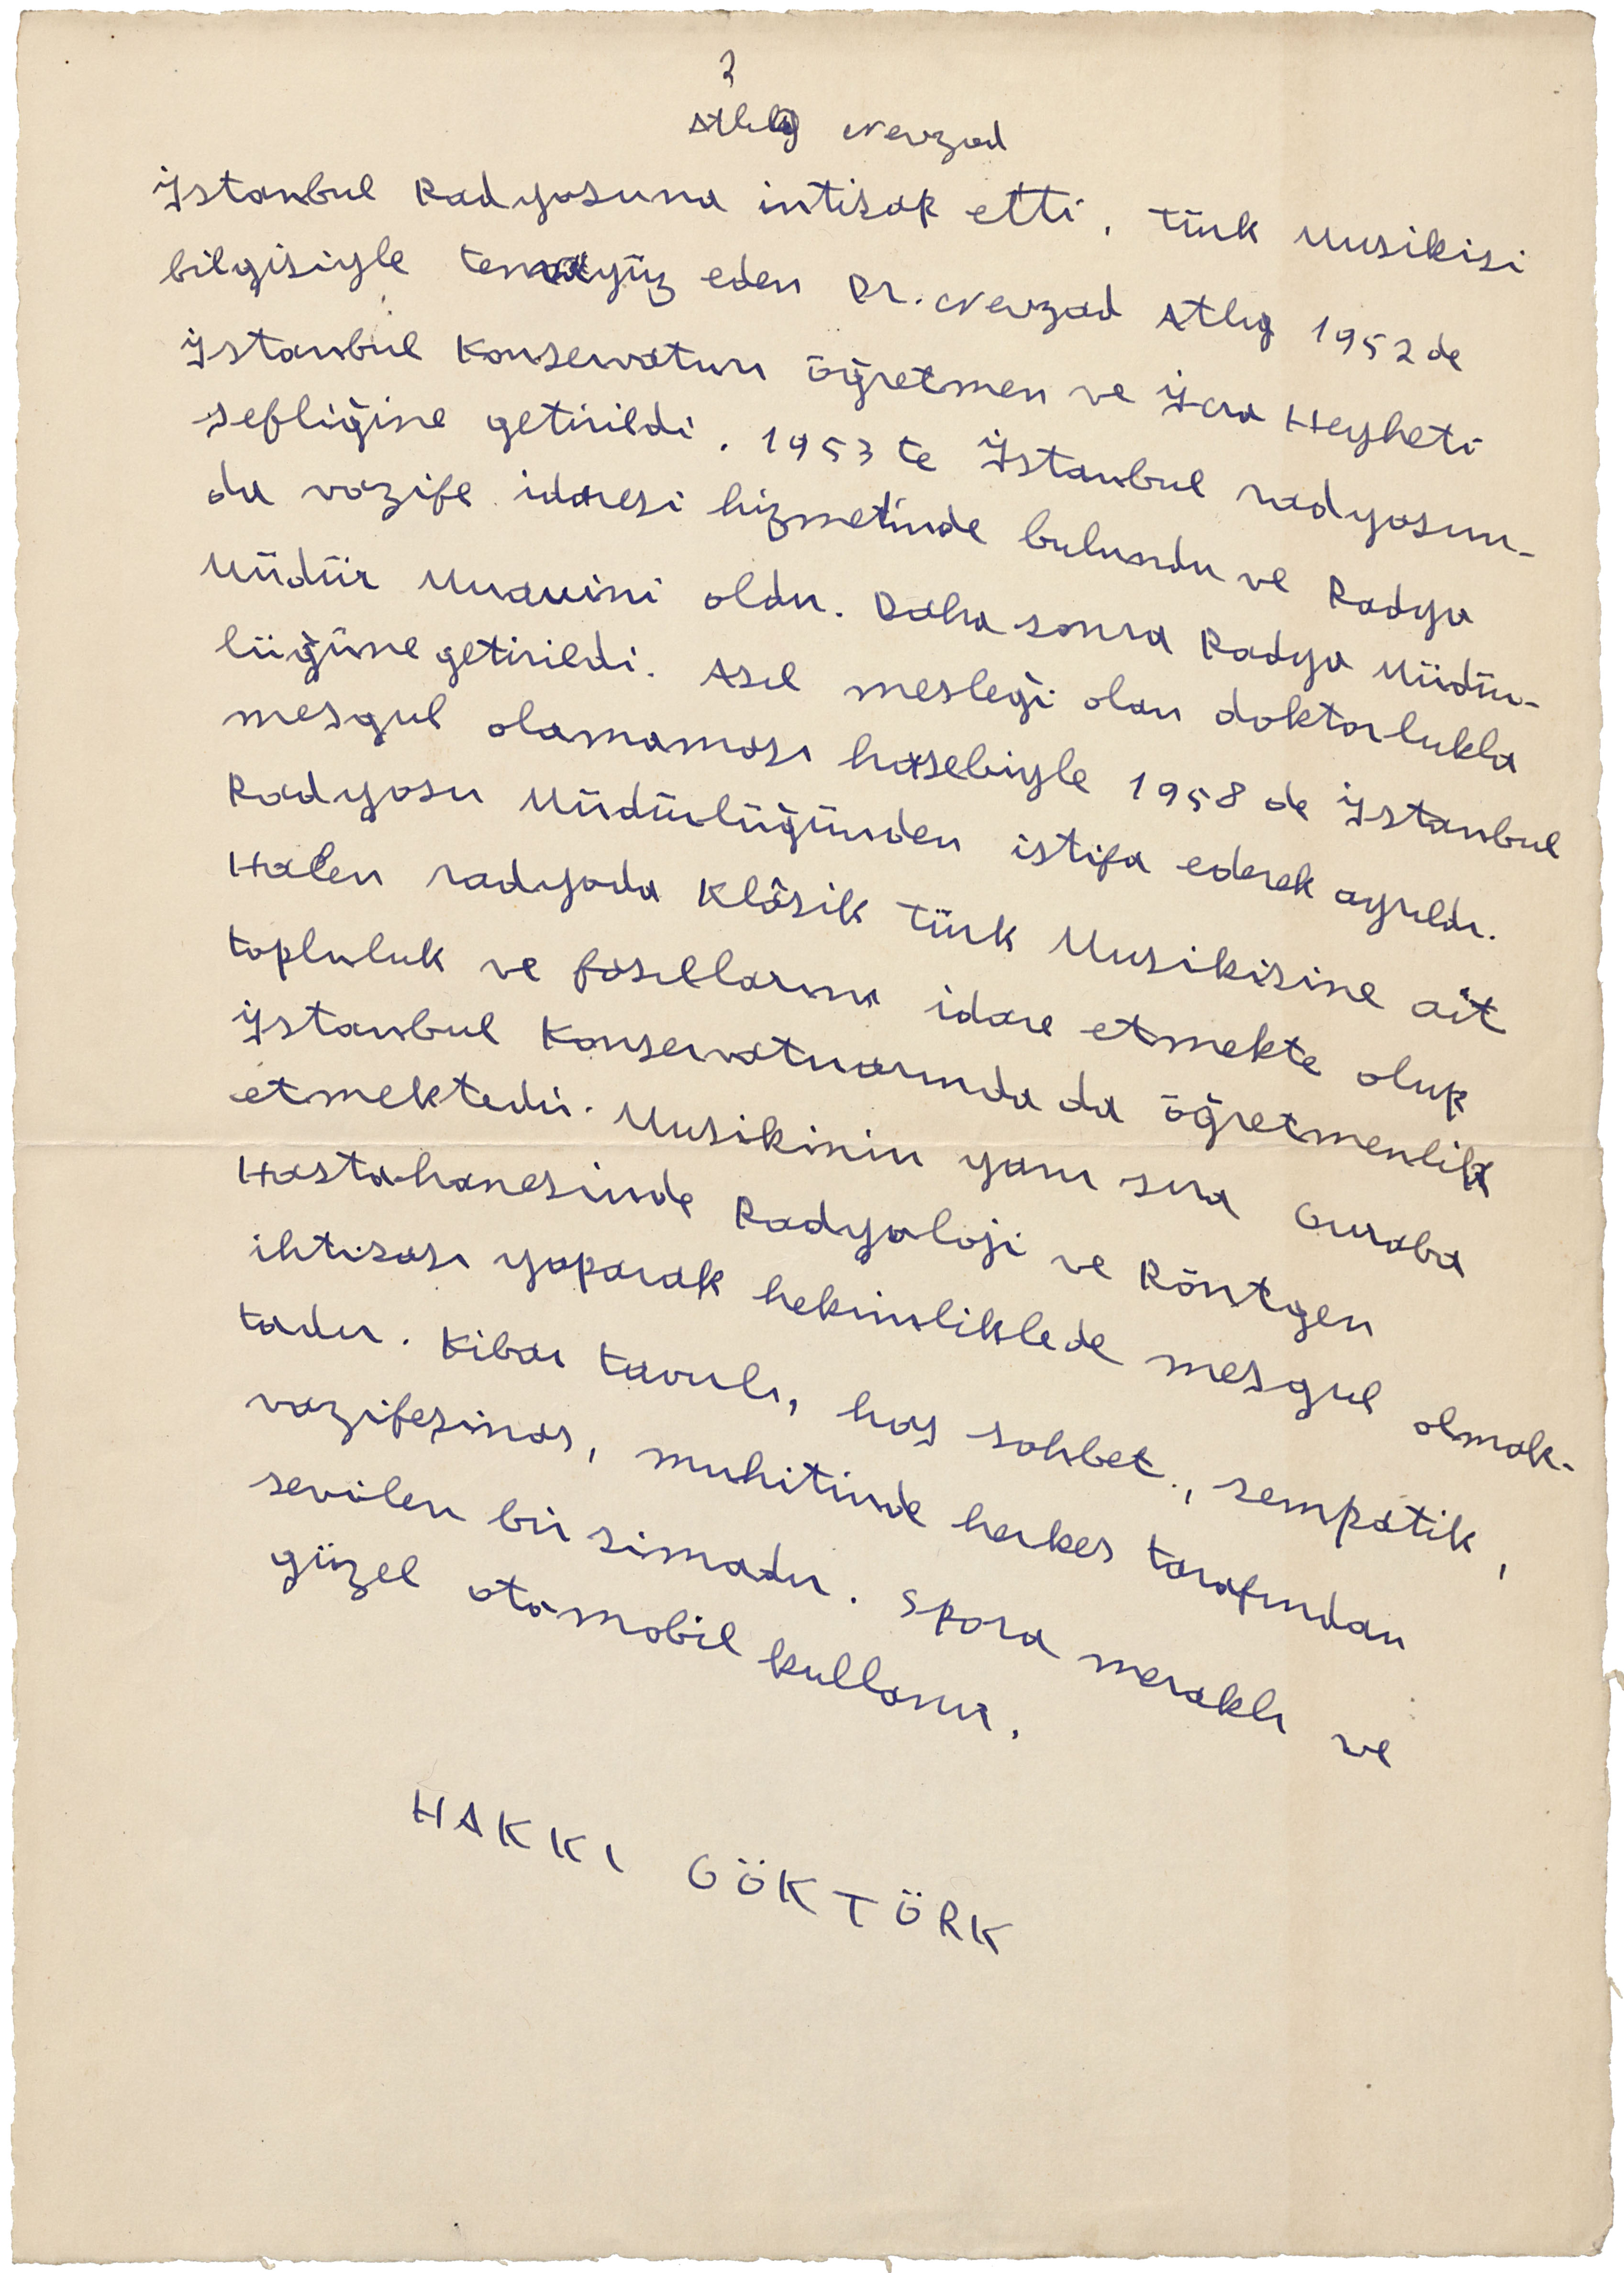 2
Atlığ Nevzad
İstanbul Radyosuna intisap etti. Türk Musikisi
bilgisiyle temayüz eden Dr. Nevzad Atlığ 1952 de
İstanbul Konservaturı öğretmen ve İcra Heyheti
şefliğine getirildi. 1953 te İstanbul radyosun-
da vazife idaresi hizmetinde bulundu ve Radyo
Müdür Muavini oldu. Daha sonra Radyo Müdür-
lüğüne getirildi. Asıl mesleği olan doktorlukla
meşgul olamaması hasebiyle 1958 de İstanbul
Radyosu Müdürlüğünden istifa ederek ayrıldı.
Halen radyoda Klâsik Türk Musikisine ait
topluluk ve fasıllarını idare etmekte olup
İstanbul Konservatuarında da öğretmenlik
etmektedir. Musikinin yanı sıra Guraba
Hastahanesinde Radyoloji ve Röntgen
ihtisası yaparak hekimliklede meşgul olmak-
tadır. Kibar tavırlı, hoş sohbet, sempatik,
vazifeşinas, muhitinde herkes tarafından
sevilen bir simadır. Spora meraklı ve
güzel otomobil kullanır.
HAKKI GÖKTÖRK